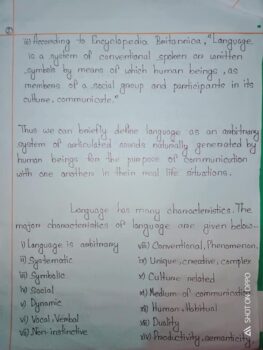 iii) According to Encyclopedia Britannica, "Language
is a system of conventional spoken or written
symbols by means of which human beings, as
members of a social group and participants in its
culture, communicate."
Thus we can briefly define language as an arbitrary
system of articulated sounds naturally generated by
human beings for the purpose of communication
with one another in their real life situations.
Language has many characteristics. The
major characteristics of language are given below-
i) Language is arbitrary
ii) Systematic
iii) Symbolic
iv) Social
v) Dynamic
vi) Vocal, Verbal
vii) Non-instinctive
viii) Conventional, Phenomenon,
ix) Unique, creative, complex
x) Culture related
xi) Medium of communication
xii) Human, Habitual
xiii) Duality
xiv) Productivity, semanticity,
SHOT ON OPPO